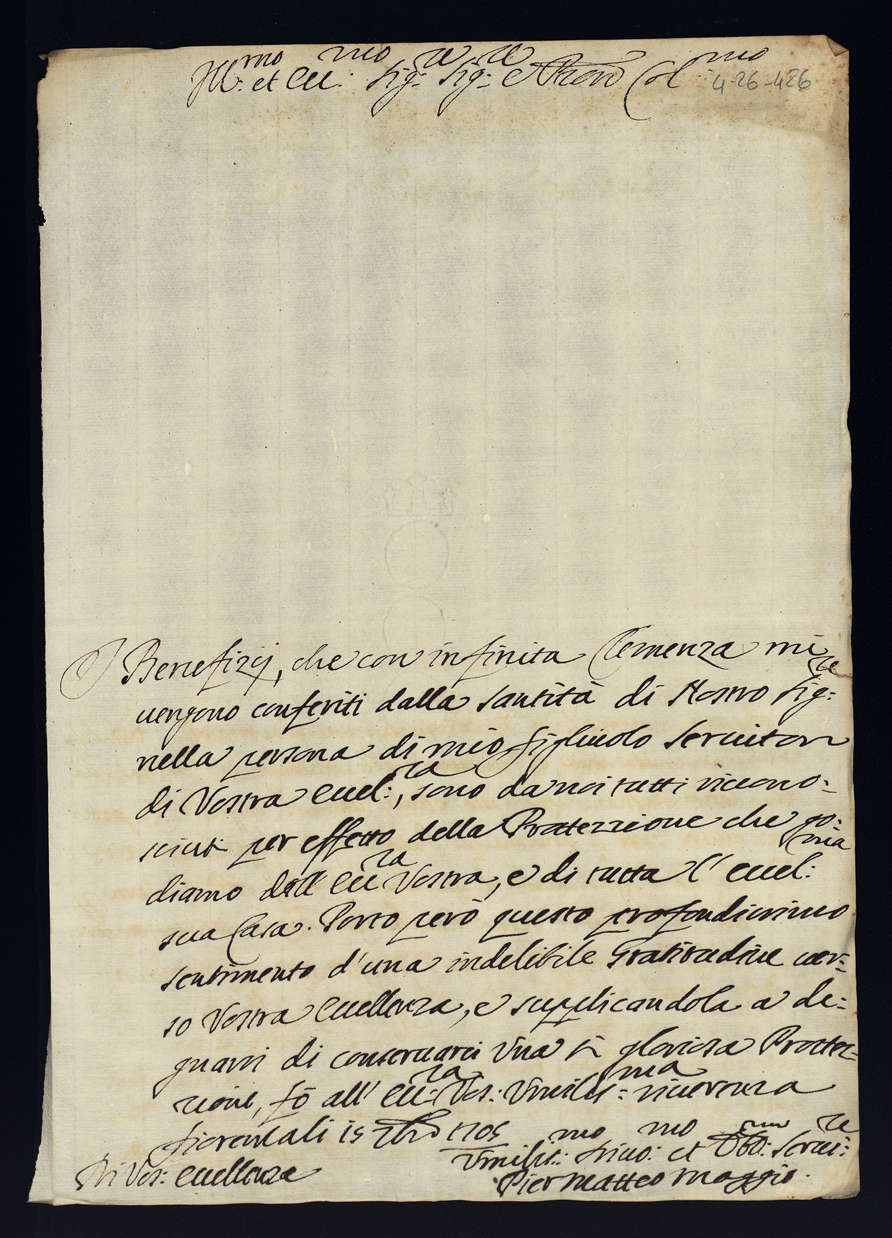 Ill:mo et Ecc:mo Sig:re Sig:re e Pron Col:mo
4-26-426
I Benefizij, che con infinita Clemenza mi
vengono conferiti dalla Santità di Nostro Sig:re
nella persona di mio figliuolo Servitore
di Vostra Eccel:za, sono da noi tutti ricono-
sciuti per effetto della Protezzione che go-
diamo dall' Ecc:za Vostra, e di tutta l' Eccel:ma
sua Casa. Porto però questo profondissimo
sentimento d'una indelibile Gratitudine ver-
so Vostra Eccellenza, e supplicandola a de-
gnarsi di conservarci Una sì gloriosa Protez-
zione, fò all' Ecc:za Vos: Umiliss:ma riverenza
15 1705
Di Vos: Eccellenza
Umilis:mo Divo:mo et Obb:mo Servi:re
Pier Matteo Maggio.